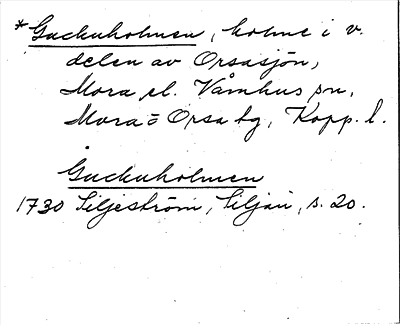 *Guckuholmen, holme i v.
delen av Orsasjön,
Mora el. Våmhus sn,
Mora= Orsa tg, Kopp. l.
Guckuholmen
1730 Siljeström, Siljan, s. 20.